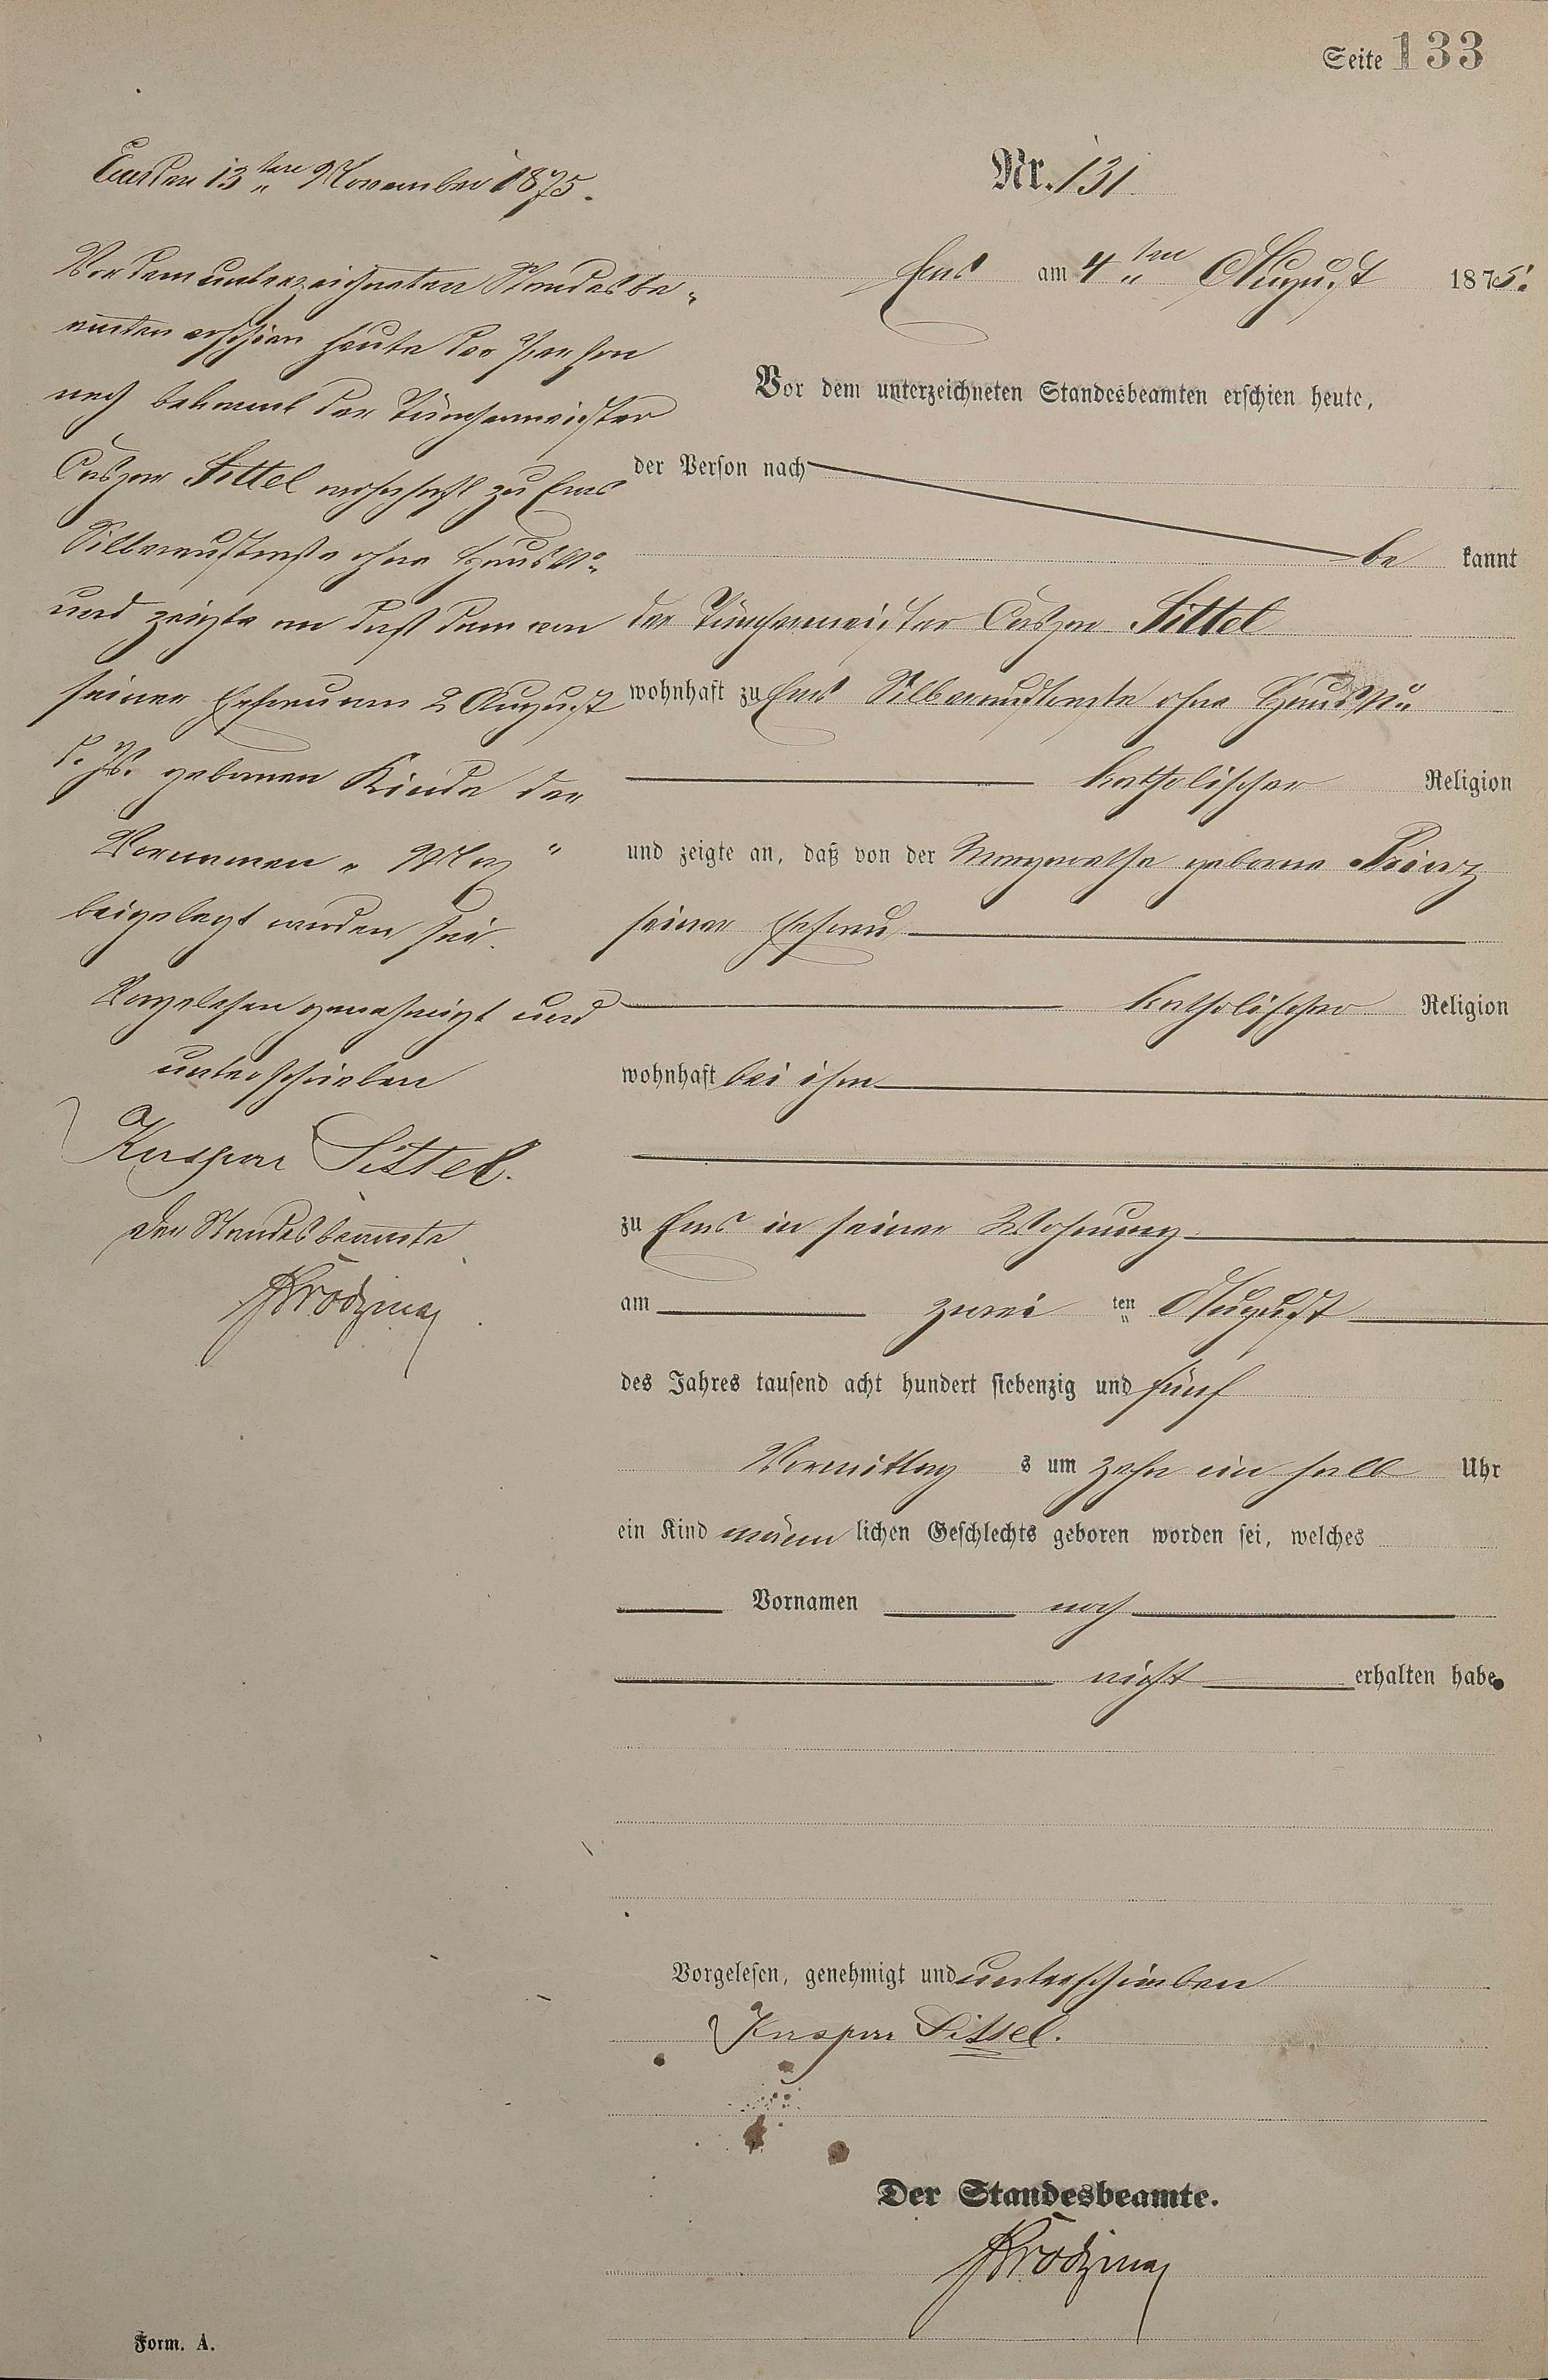 Seite 133
Ems den 13ten November 1875.
Vor dem unterzeichneten Standesbe-
amten erschien heute der Person
nach bekannt der Tünchermeister
Caspar Sittel wohnhaft zu Ems
Silberaustraße ohne Haus No
und zeigte an daß dem von
seiner Ehefrau am 2 August
d. Js. gebornen Kinde der
Vornamen „Max“
beigelegt worden sei.
Vorgelesen genehmigt und
unterschrieben
Kaspar Sittel.
Der Standesbeamte
Nr. 131
Ems am 4ten August 1875.
Vor dem unterzeichneten Standesbeamten erschien heute,
der Person nach
be kannt
der Tünchermeister Caspar Sittel
wohnhaft zu Ems Silberaustraße ohne Haus No
katholischer Religion
und zeigte an, daß von der Margarethe geborne Prinz
seiner Ehefrau
katholischer Religion
wohnhaft bei ihm
zu Ems in seiner Wohnung
am zwei ten August
des Jahres tausend acht hundert siebenzig und fünf
Vormittag s um zehn ein halb Uhr
ein Kind männ lichen Geschlechts geboren worden sei, welches
Vornamen noch
nicht erhalten habe
Vorgelesen, genehmigt und unterschrieben
Kaspar Sittel.
Der Standesbeamte.
Form. A.